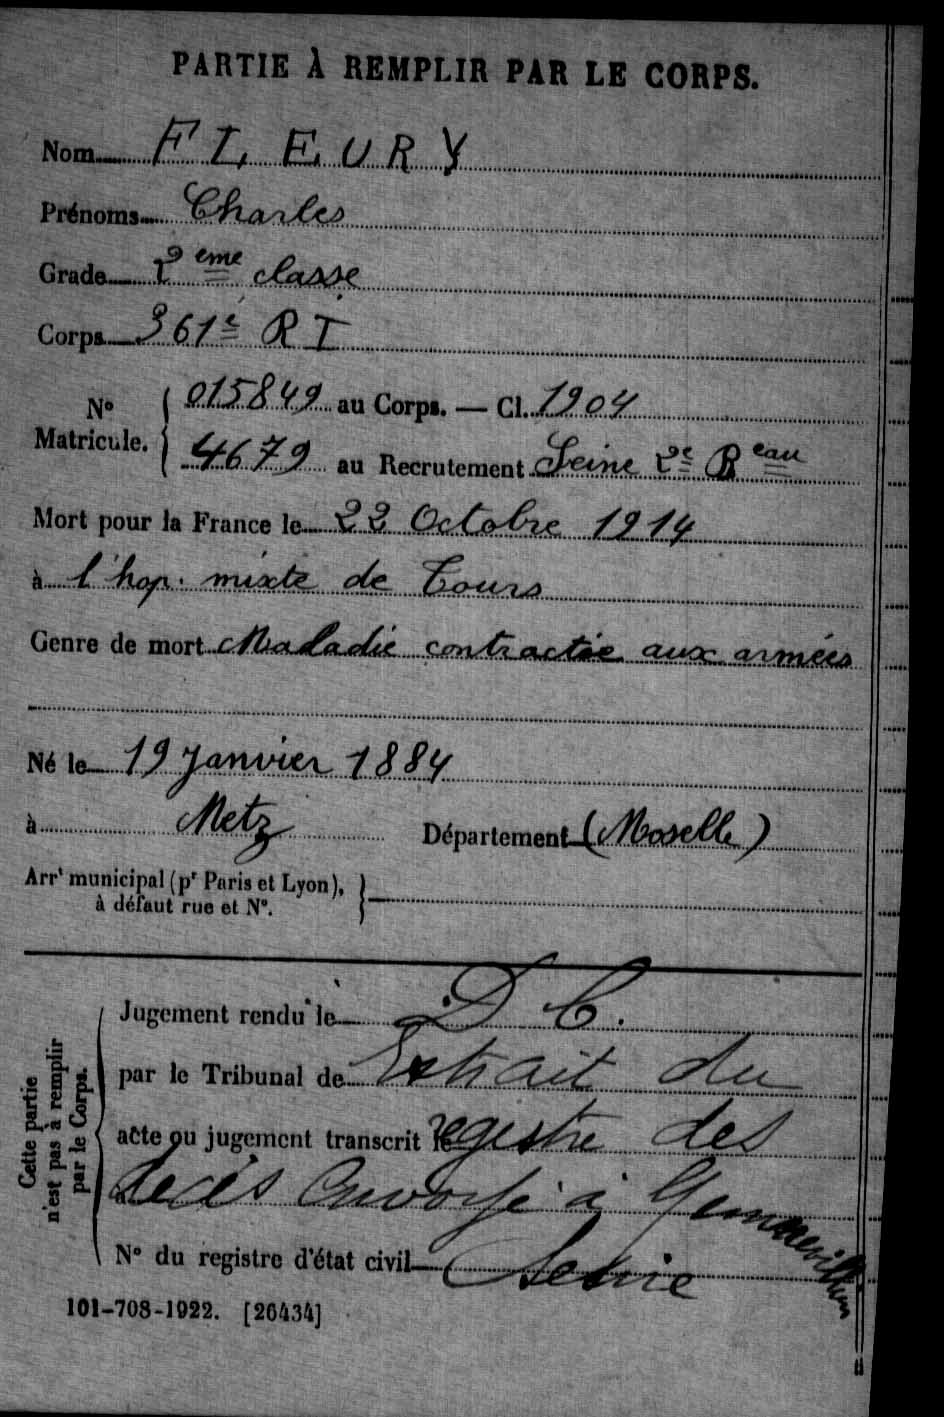 PARTIE À REMPLIR PAR LE CORPS.
Nom FLEURY
Prénoms Charles
Grade 2eme classe
Corps 361e RI
No Matricule. { 015849 au Corps. — Cl. 1904
4679 au Recrutement Seine 2e Beau
Mort pour la France le 22 Octobre 1914
à l'hop. mixte de Tours
Genre de mort Maladie contractée aux armées
Né le 19 Janvier 1884
à Metz Département (Moselle)
Arrt municipal (pr Paris et Lyon),
à défaut rue et No. }
Cette partie n'est pas à remplir par le Corps.
Jugement rendu le D C.
par le Tribunal de Extrait du
acte ou jugement transcrit le registre des
à décès envoyé à Gennevilliers
No du registre d'état civil Seine
101-708-1922. [26434]